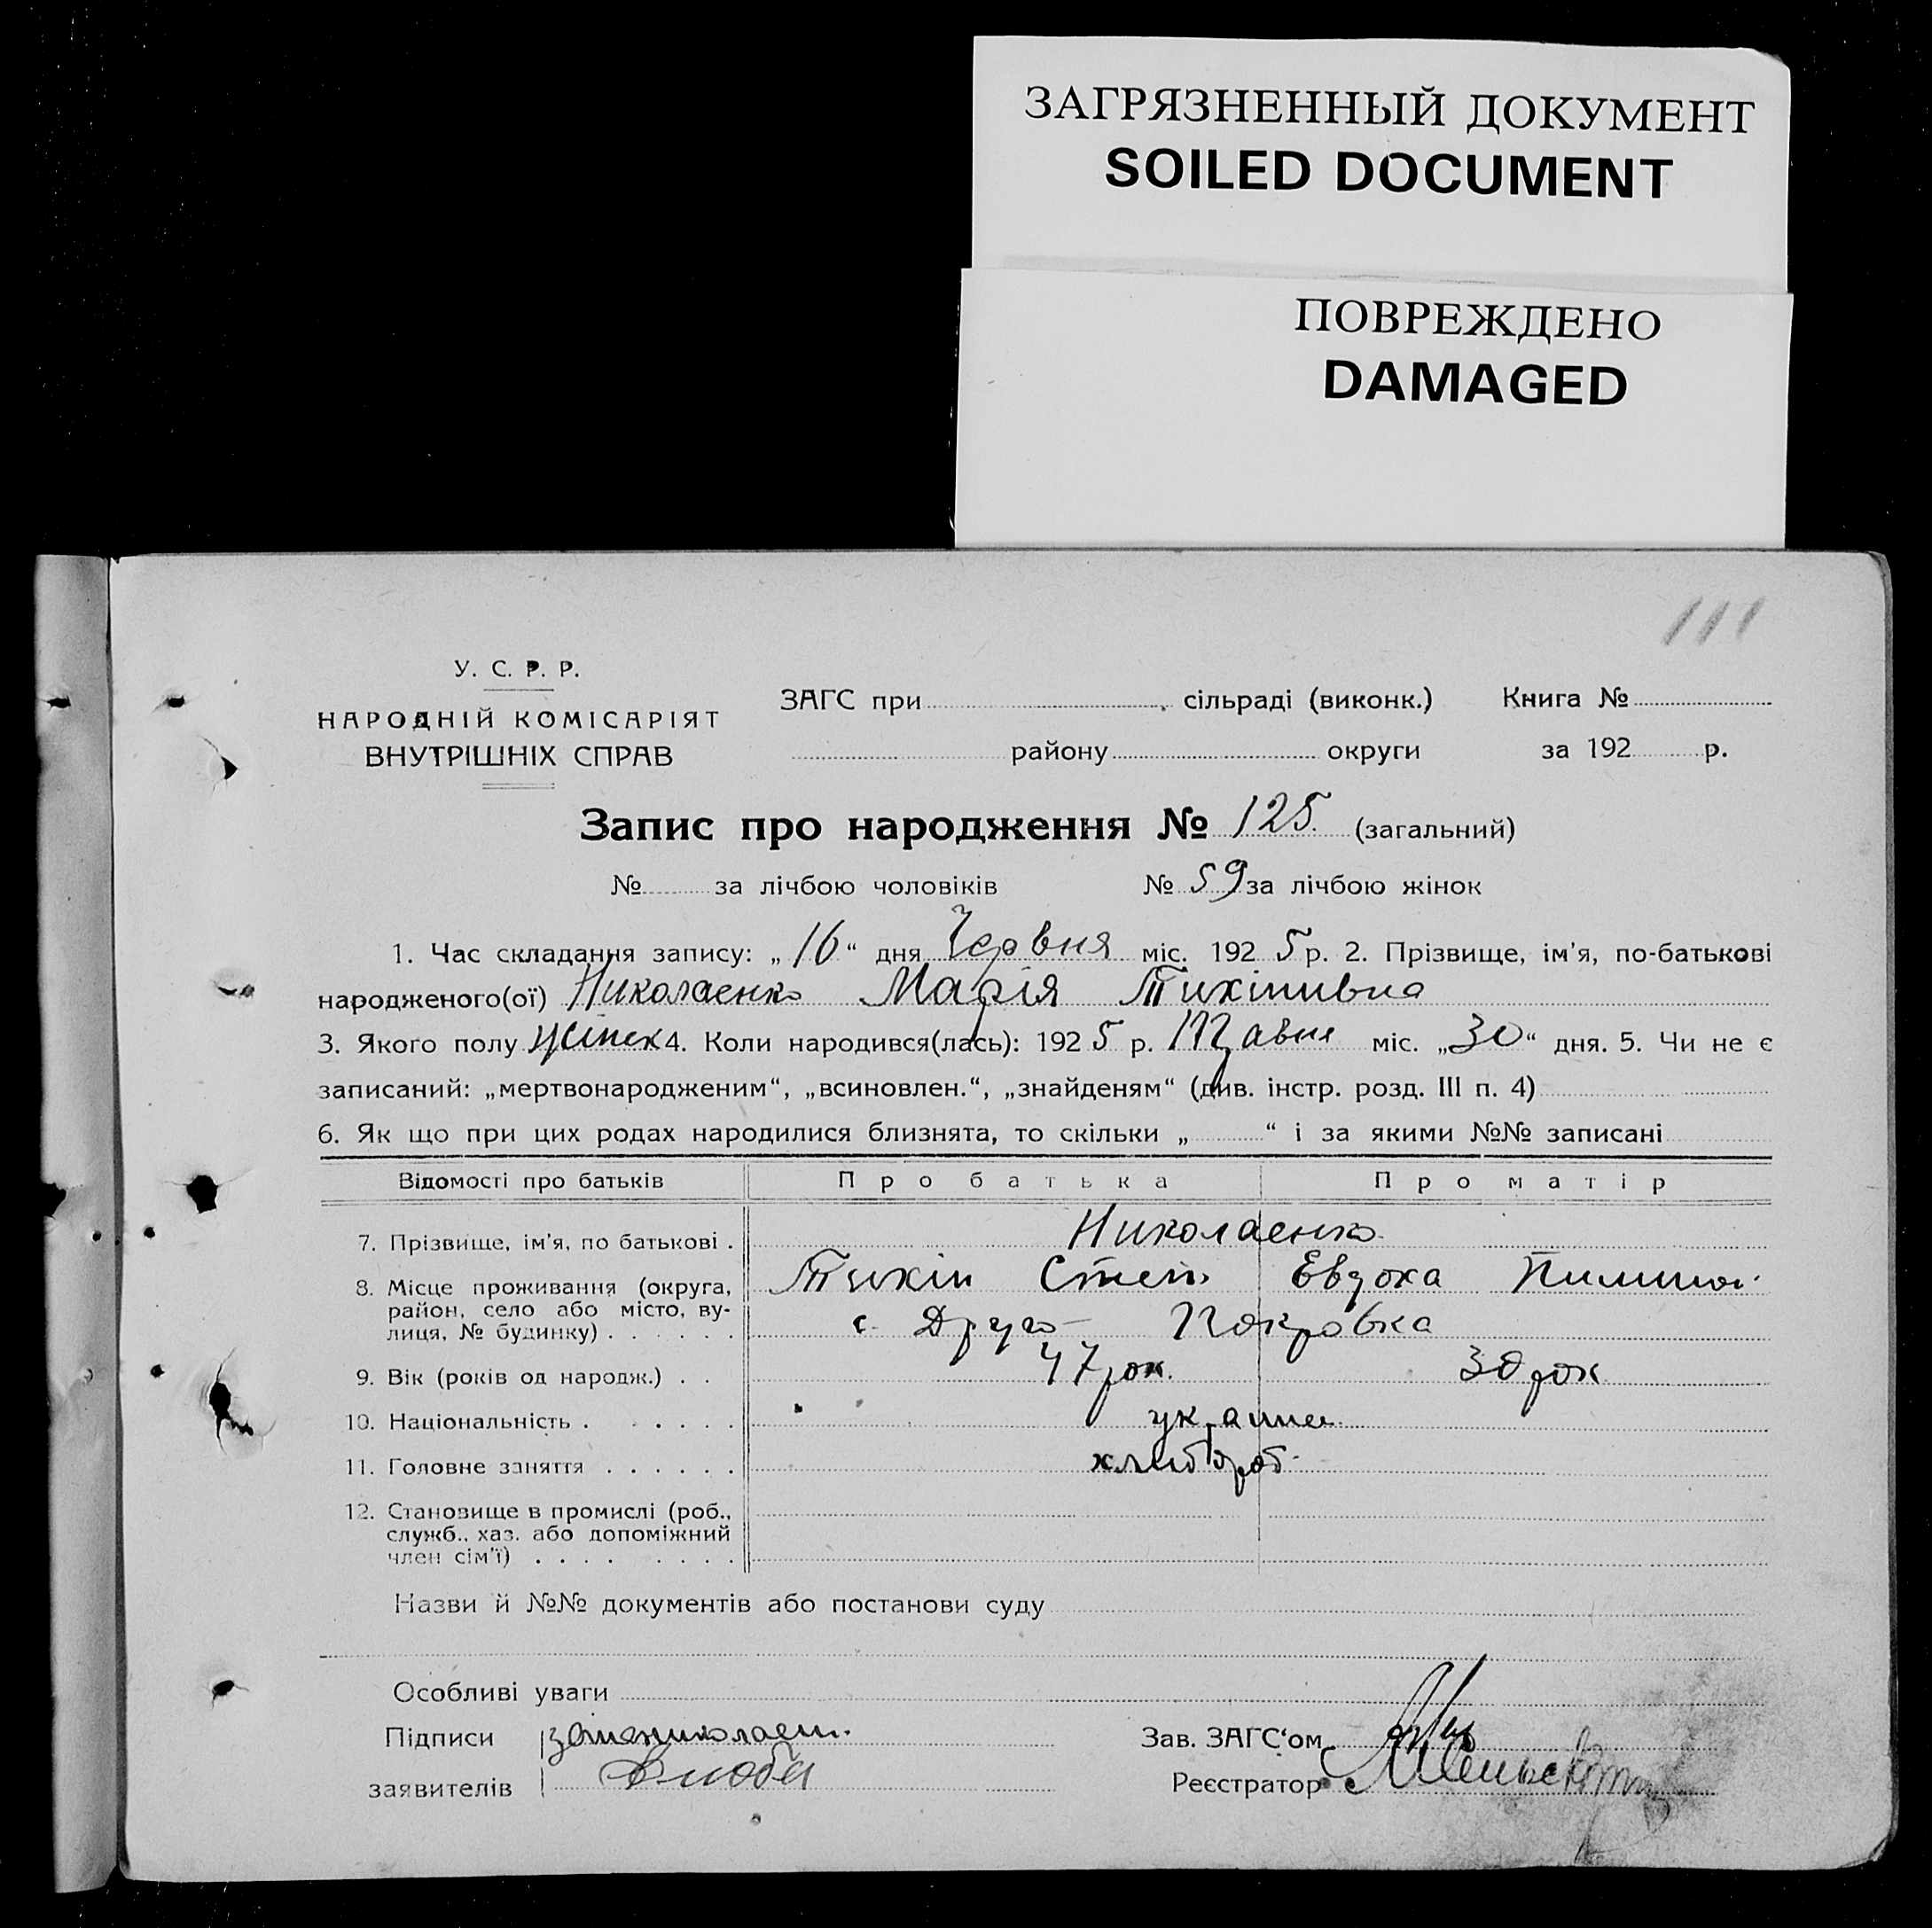 ЗАГРЯЗНЕННЫЙ ДОКУМЕНТ
SOILED DOCUMENT
ПОВРЕЖДЕНО
DAMAGED
111
У. С. Р. Р.
НАРОДНІЙ КОМІСАРІЯТ
ВНУТРІШНІХ СПРАВ
ЗАГС при сільраді (виконк.) Книга №
району округи за 192 р.
Запис про народження № 125 (загальний)
№ за лічбою чоловіків № 59 за лічбою жінок
1. Час складання запису: „16“ дня Червня міс. 1925 р. 2. Прізвище, ім'я, по-батькові
народженого(ої) Николаенко Марія Тихінивна
3. Якого полу 4. Коли народився(лась): 1925 р. Травня міс. „30“ дня. 5. Чи не є
записаний: „мертвонародженим“, „всиновлен.“, „знайденям“ (див. інстр. розд. III п. 4)
6. Як що при цих родах народилися близнята, то скільки „ “ і за якими №№ записані
Відомості про батьків Про батька Про матір
7. Прізвище, ім'я, по батькові . Николаенко
8. Місце проживання (округа, Тихін Степ Евдоха
район, село або місто, ву-
лиця, № будинку) . . . . . . с. Друго- Покровка
9. Вік (років од народж.) . . 47 рок. 30 рок
10. Національність . . . . . . украине
11. Головне заняття . . . . . . хлибороб
12. Становище в промислі (роб.,
служб., хаз. або допоміжний
член сім'ї) . . . . . . . .
Назви й №№ документів або постанови суду
Особливі уваги
Підписи Зав. ЗАГС'ом
заявителів Реєстратор